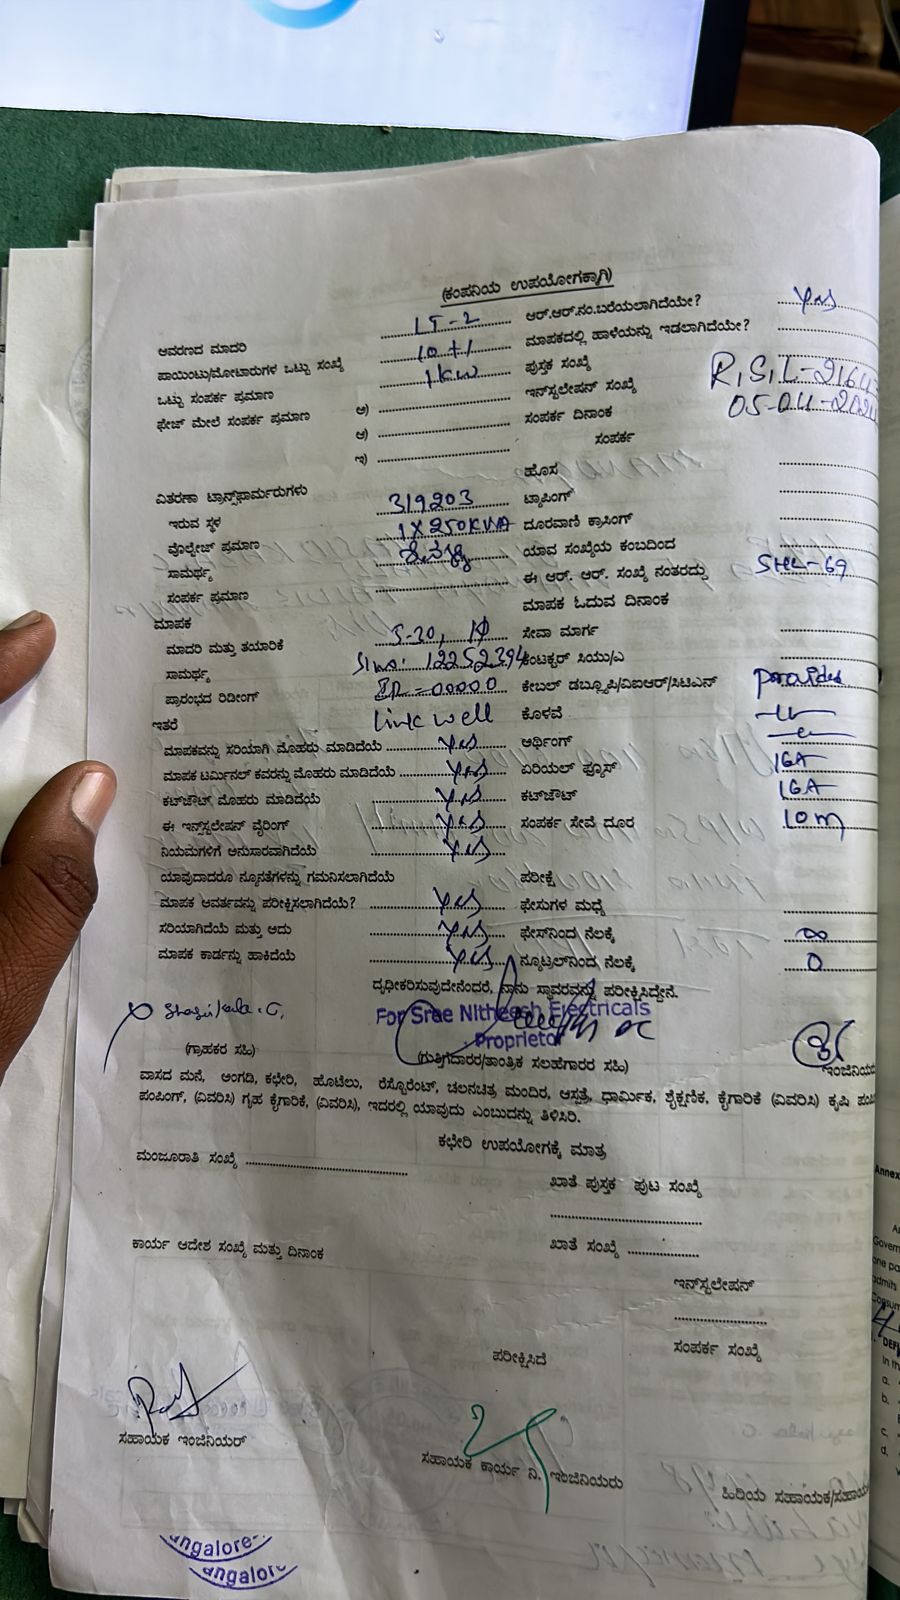 (ಕಂಪನಿಯ ಉಪಯೋಗಕ್ಕಾಗಿ)
ಆವರಣದ ಮಾದರಿ LT-2 ಆರ್.ಆರ್.ನಂ.ಬರೆಯಲಾಗಿದೆಯೇ? Yes
ಪಾಯಿಂಟು/ಮೋಟಾರುಗಳ ಒಟ್ಟು ಸಂಖ್ಯೆ 10+1 ಮಾಪಕದಲ್ಲಿ ಹಾಳೆಯನ್ನು ಇಡಲಾಗಿದೆಯೇ?
ಒಟ್ಟು ಸಂಪರ್ಕ ಪ್ರಮಾಣ 1KW ಪುಸ್ತಕ ಸಂಖ್ಯೆ
ಫೇಜ್ ಮೇಲೆ ಸಂಪರ್ಕ ಪ್ರಮಾಣ ಅ) ಇನ್‌ಸ್ಟಲೇಷನ್ ಸಂಖ್ಯೆ
ಆ) ಸಂಪರ್ಕ ದಿನಾಂಕ
ಇ) ಸಂಪರ್ಕ
ಹೊಸ
ವಿತರಣಾ ಟ್ರಾನ್ಸ್‌ಫಾರ್ಮರುಗಳು 319203 ಟ್ಯಾಪಿಂಗ್
ಇರುವ ಸ್ಥಳ 1X250KVA ದೂರವಾಣಿ ಕ್ರಾಸಿಂಗ್
ವೊಲ್ಟೇಜ್ ಪ್ರಮಾಣ ಯಾವ ಸಂಖ್ಯೆಯ ಕಂಬದಿಂದ
ಸಾಮರ್ಥ್ಯ ಈ ಆರ್. ಆರ್. ಸಂಖ್ಯೆ ನಂತರದ್ದು SHL-69
ಸಂಪರ್ಕ ಪ್ರಮಾಣ ಮಾಪಕ ಓದುವ ದಿನಾಂಕ
ಮಾಪಕ
ಮಾದರಿ ಮತ್ತು ತಯಾರಿಕೆ 5-30, 1Φ ಸೇವಾ ಮಾರ್ಗ
ಸಾಮರ್ಥ್ಯ Slno: 12252394 ಕಂಟಕ್ಟರ್ ಸಿಯು/ಎ
ಪ್ರಾರಂಭದ ರಿಡೀಂಗ್ IR-00000 ಕೇಬಲ್ ಡಬ್ಲ್ಯೂಪಿ/ವಿಐಆರ್/ಸಿಟಿಎಸ್ provided
ಇತರೆ Link well ಕೊಳವೆ
ಮಾಪಕವನ್ನು ಸರಿಯಾಗಿ ಮೊಹರು ಮಾಡಿದೆಯೆ Yes ಆರ್ಥಿಂಗ್
ಮಾಪಕ ಟರ್ಮಿನಲ್ ಕವರನ್ನು ಮೊಹರು ಮಾಡಿದೆಯೆ Yes ಏರಿಯಲ್ ಫ್ಯೂಸ್ 16A
ಕಟ್‌ಔಟ್ ಮೊಹರು ಮಾಡಿದೆಯೆ Yes ಕಟ್‌ಔಟ್ 16A
ಈ ಇನ್‌ಸ್ಟಲೇಷನ್ ವೈರಿಂಗ್ Yes ಸಂಪರ್ಕ ಸೇವೆ ದೂರ 10m
ನಿಯಮಗಳಿಗೆ ಅನುಸಾರವಾಗಿದೆಯೆ Yes
ಯಾವುದಾದರೂ ನ್ಯೂನತೆಗಳನ್ನು ಗಮನಿಸಲಾಗಿದೆಯೆ ಪರೀಕ್ಷೆ
ಮಾಪಕ ಆವರ್ತವನ್ನು ಪರೀಕ್ಷಿಸಲಾಗಿದೆಯೆ? Yes ಫೇಸುಗಳ ಮಧ್ಯೆ
ಸರಿಯಾಗಿದೆಯೆ ಮತ್ತು ಅದು Yes ಫೇಸ್‌ನಿಂದ ನೆಲಕ್ಕೆ ∞
ಮಾಪಕ ಕಾರ್ಡನ್ನು ಹಾಕಿದೆಯೆ Yes ನ್ಯೂಟ್ರಲ್‌ನಿಂದ ನೆಲಕ್ಕೆ 0
ದೃಢೀಕರಿಸುವುದೇನೆಂದರೆ, ನಾನು ಸ್ಥಾವರವನ್ನು ಪರೀಕ್ಷಿಸಿದ್ದೇನೆ.
For Sree Nitheesh Electricals
Proprietor
(ಗ್ರಾಹಕರ ಸಹಿ) (ಗುತ್ತಿಗೆದಾರರ/ತಾಂತ್ರಿಕ ಸಲಹೆಗಾರರ ಸಹಿ)
ವಾಸದ ಮನೆ, ಅಂಗಡಿ, ಕಛೇರಿ, ಹೊಟೆಲು, ರೆಸ್ಟೊರೆಂಟ್, ಚಲನಚಿತ್ರ ಮಂದಿರ, ಆಸ್ಪತ್ರೆ, ಧಾರ್ಮಿಕ, ಶೈಕ್ಷಣಿಕ, ಕೈಗಾರಿಕೆ (ವಿವರಿಸಿ) ಕೃಷಿ
ಪಂಪಿಂಗ್, (ವಿವರಿಸಿ) ಗೃಹ ಕೈಗಾರಿಕೆ, (ವಿವರಿಸಿ), ಇದರಲ್ಲಿ ಯಾವುದು ಎಂಬುದನ್ನು ತಿಳಿಸಿರಿ.
ಕಛೇರಿ ಉಪಯೋಗಕ್ಕೆ ಮಾತ್ರ
ಮಂಜೂರಾತಿ ಸಂಖ್ಯೆ
ಖಾತೆ ಪುಸ್ತಕ ಪುಟ ಸಂಖ್ಯೆ
ಕಾರ್ಯ ಆದೇಶ ಸಂಖ್ಯೆ ಮತ್ತು ದಿನಾಂಕ ಖಾತೆ ಸಂಖ್ಯೆ
ಇನ್‌ಸ್ಟಲೇಷನ್
ಪರೀಕ್ಷಿಸಿದೆ ಸಂಪರ್ಕ ಸಂಖ್ಯೆ
ಸಹಾಯಕ ಇಂಜಿನಿಯರ್ ಸಹಾಯಕ ಕಾರ್ಯ ನಿ. ಇಂಜಿನಿಯರು ಹಿರಿಯ ಸಹಾಯಕ